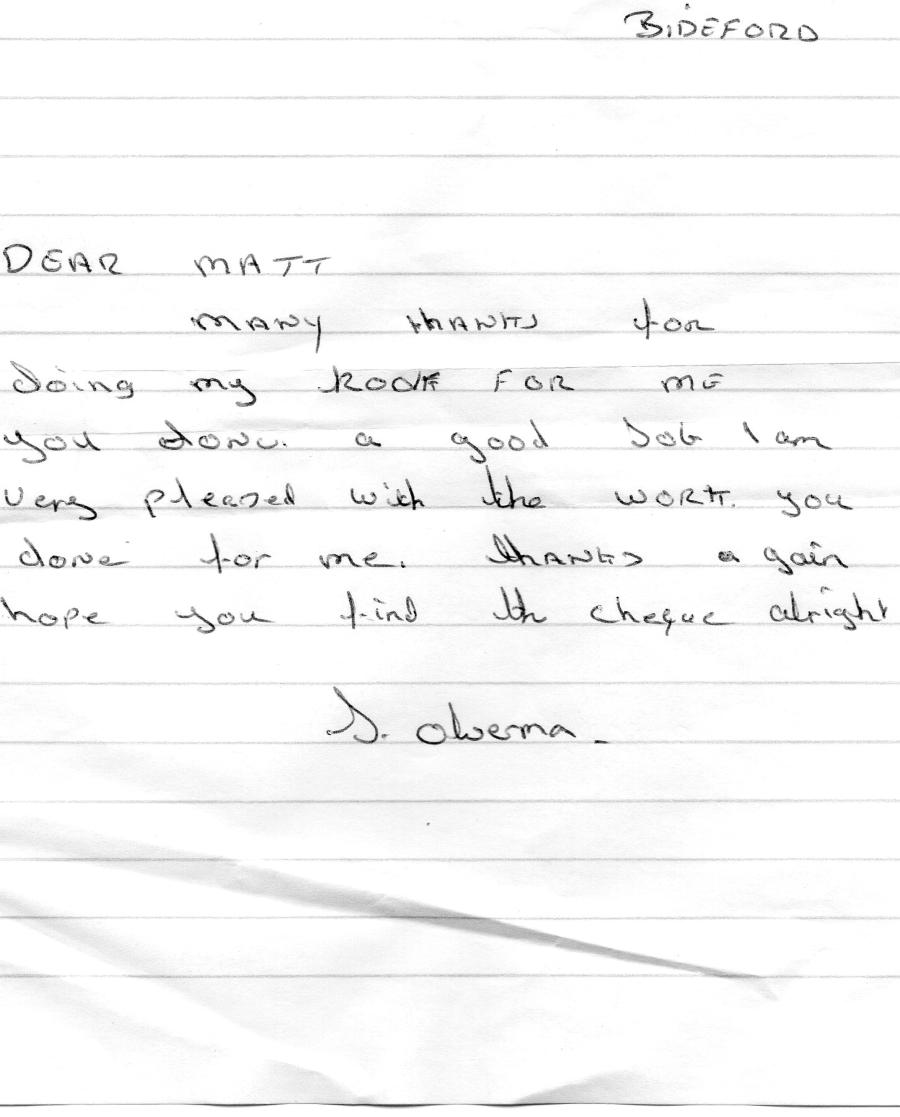 BIDEFORD
DEAR MATT
MANY thANKS for
doing my ROOF FOR ME
you done. a good Job I am
very pleased with the WORK. you
done for me. thANKS a gain
hope you find th cheque alright